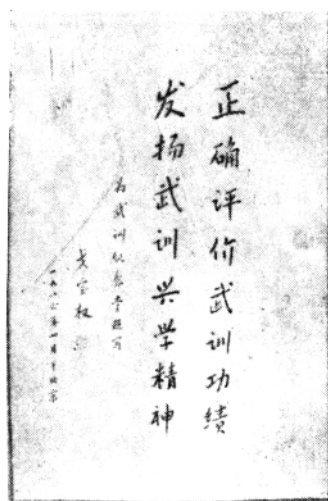 正确评价武训功绩
发扬武训兴学精神
为武训纪念堂题写
戈宝权
一九八六年四月于北京